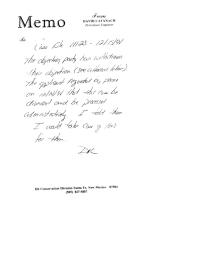 From
DAVID CATANACH
Petroleum Engineer
Memo
to
Case No. 11123 - 12/15/94
The objecting party has withdrawn
their objection (see attached letter).
The applicant requested by phone
on that this case be
dismissed and be processed
administratively. I told them
I would take care of this
for them.
Oil Conservation Division Santa Fe, New Mexico 87501
(505) 827-5807